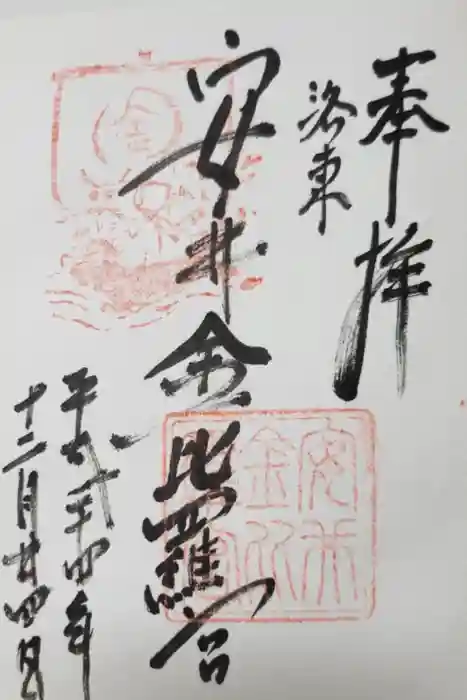 奉拝
洛東
安井金比羅宮
平成二十四年
十二月廿四日
安井
金比